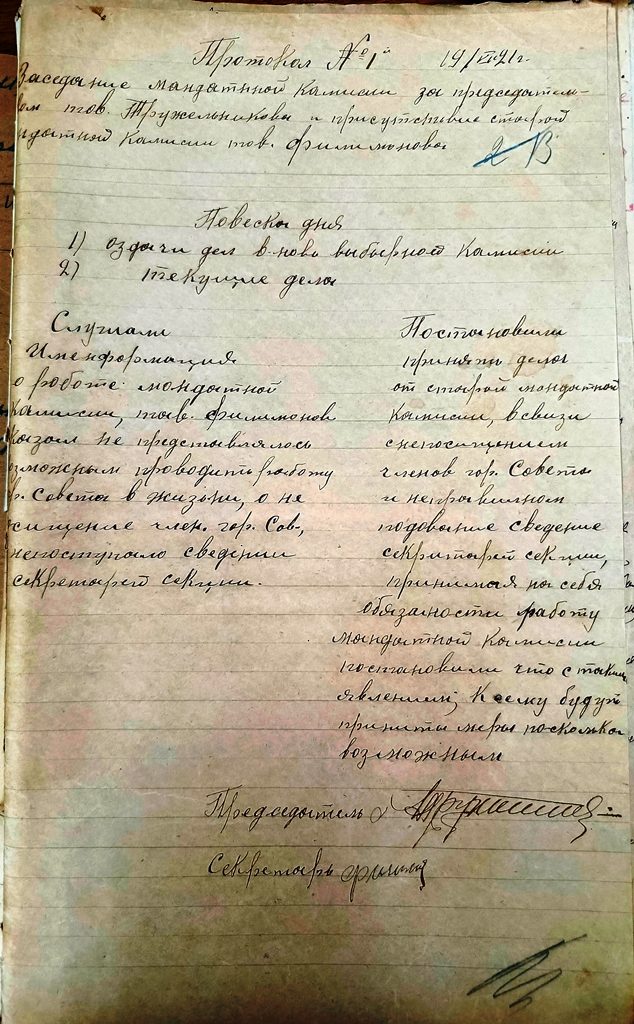 Протокол №1й 19/VI-21г.
Заседание мандатной Камисии за председатель-
ом тов. Тружельникова и присутствие старой
ндатной Камисии тов. Филимонова
2 В
Повеска дня
1) оздачи дел вново выбырной Камисии
2) текущие дела
Слушали
Именформация
о работе мандатной
Камисии, тов. Филимонов
казал не представлялось
озможным проводить работу
р. Совета в жизни, о не
сищение член. гор. Сов.,
непоступало сведении
секретарей секции.
Постановили
принять дела
от старой мандатной
Камисии, в связи
снепосищением
членов гор. Совета
и неправильном
подование сведение
секритарей секции,
принимая на себя
обязаности работу
мандатной Камисии
постановили что с таким
явлением, К сему будут
приняты меры посколько
возможным
Председатель
Секретарь